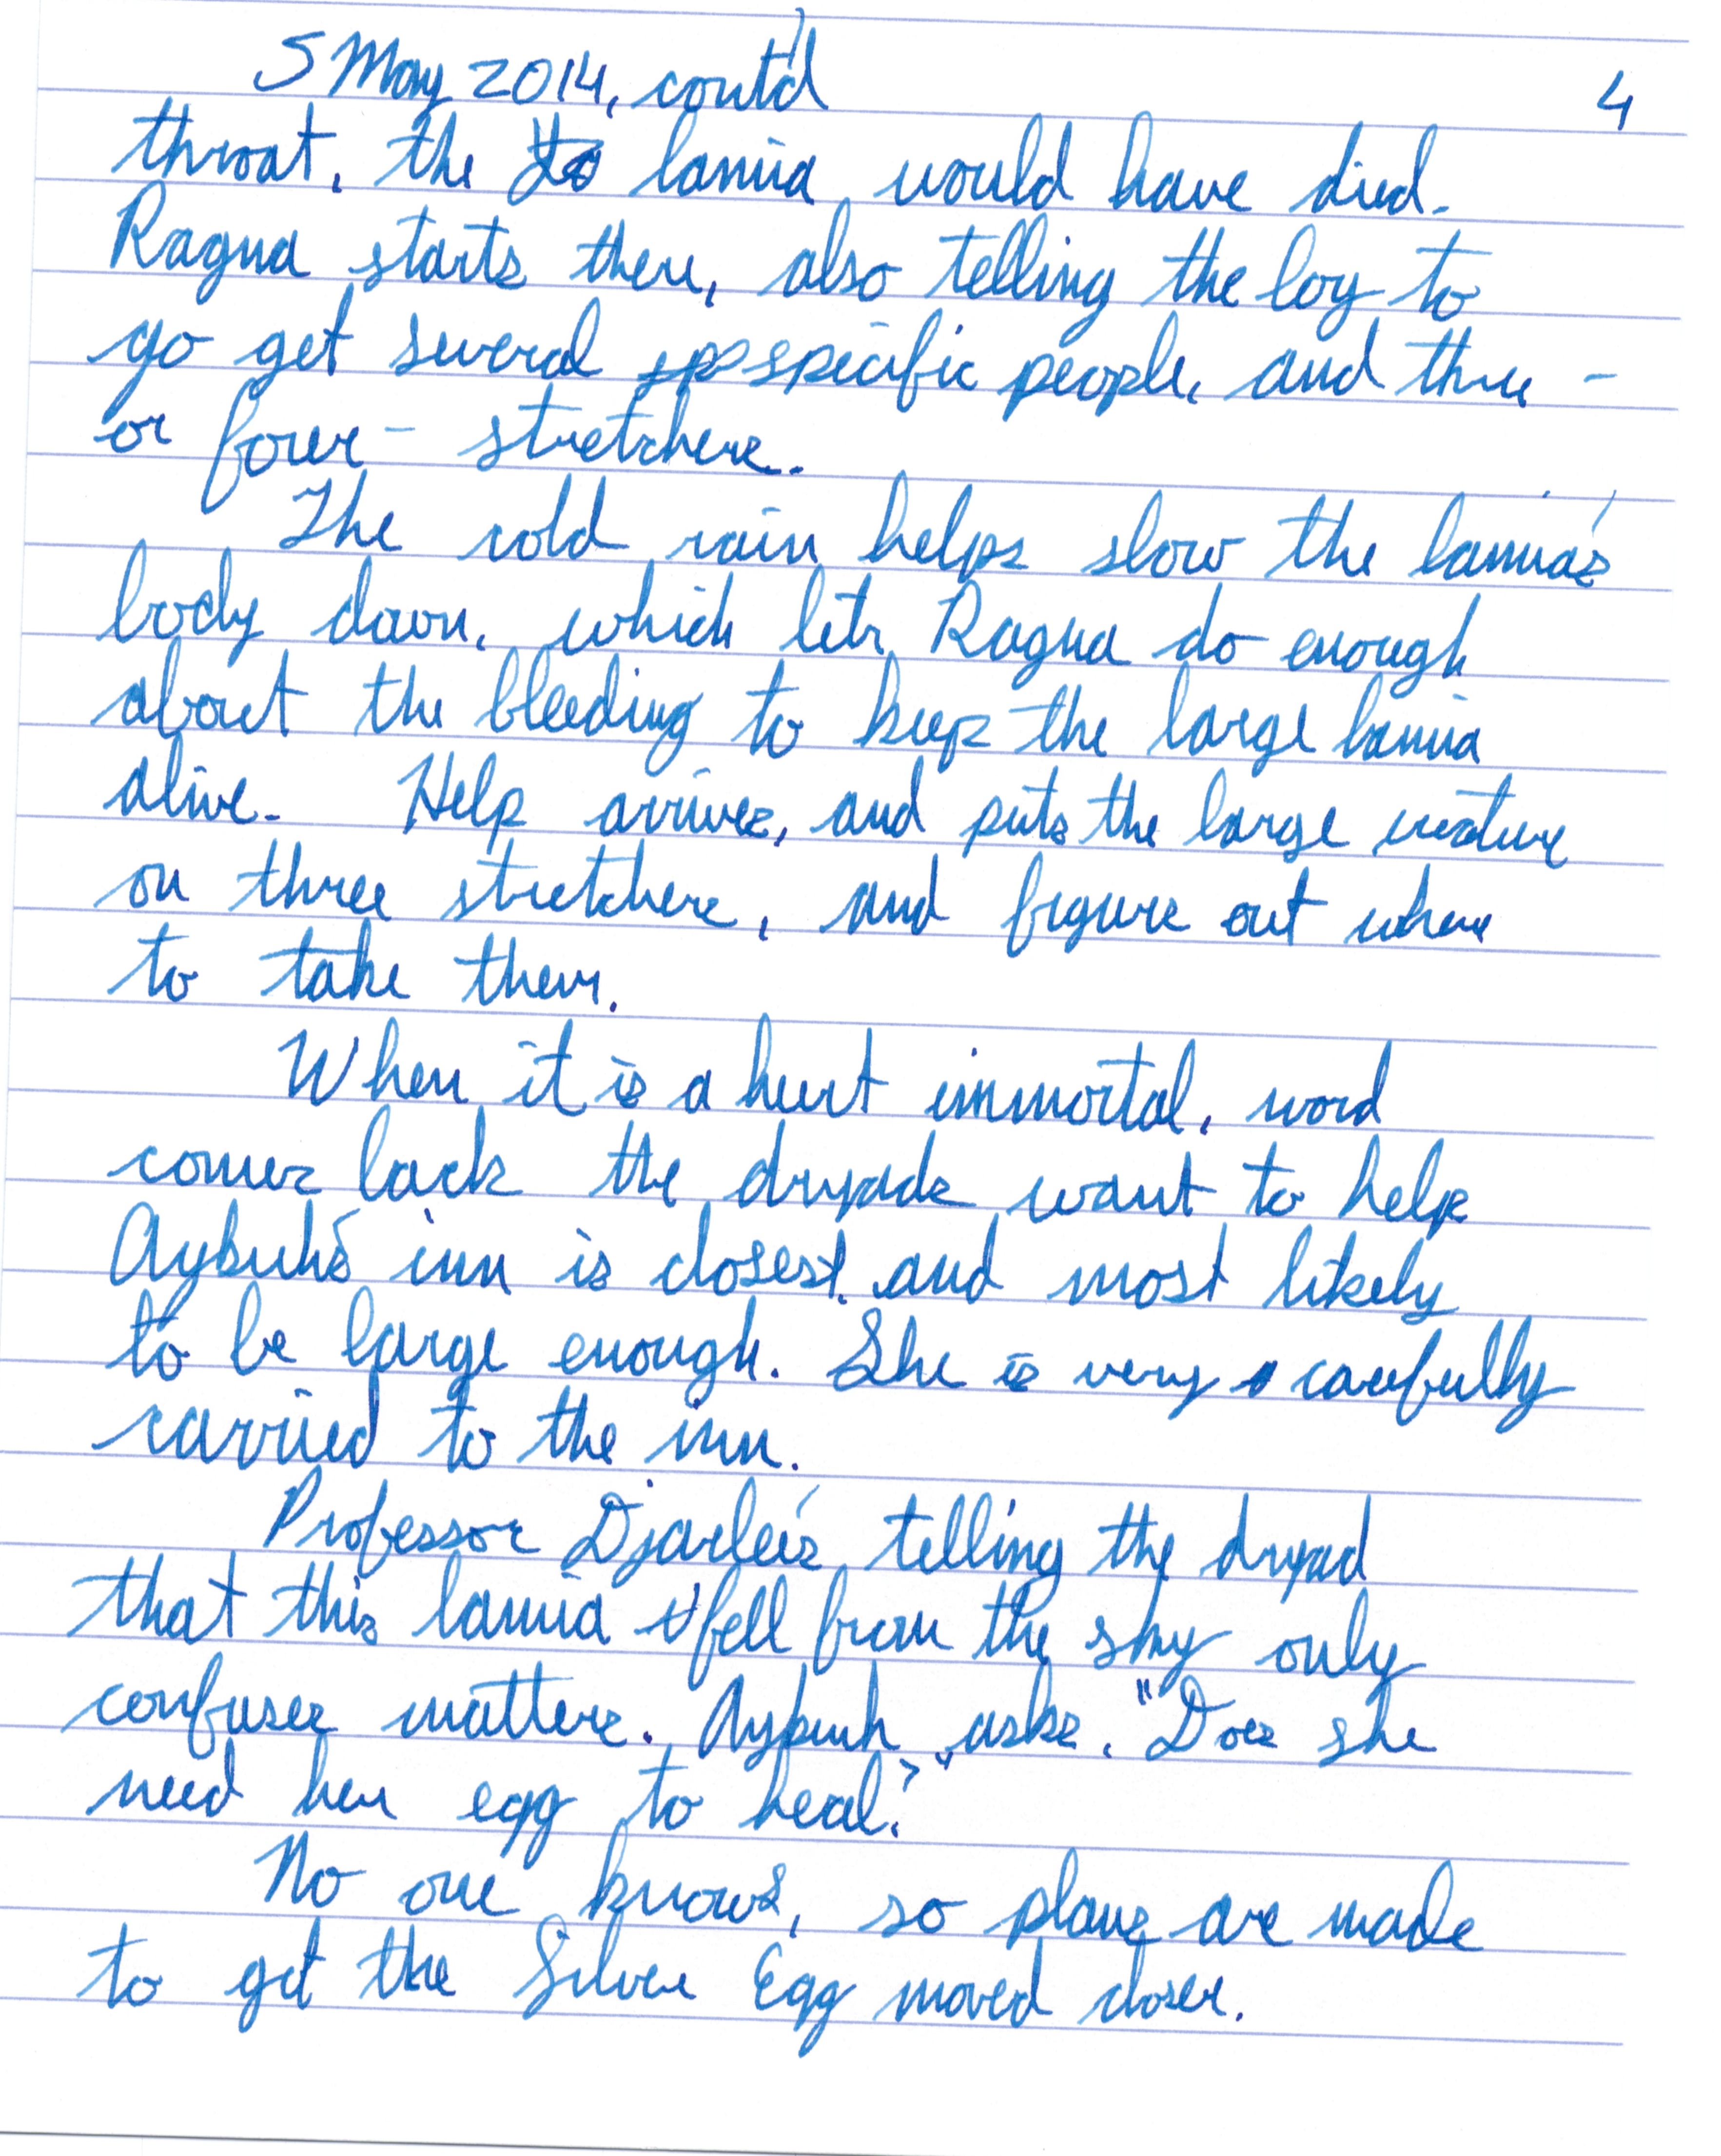 5 May 2014, cont'd 4
throat, the lamia would have died.
Ragna starts there, also telling the boy to
go get several specific people, and three -
or four - stretchers.
The cold rain helps slow the lamia's
body down, which lets Ragna do enough
about the bleeding to keep the large lamia
alive. Help arrives, and puts the large creature
on three stretchers, and figure out where
to take them.
When it is a hurt immortal, word
comes back the dryads want to help
Aybuh's inn is closest, and most likely
to be large enough. She is very carefully
carried to the inn.
Professor Djarleis telling the dryad
that this lamia fell from the sky only
confuses matters. Aybuh asks, "Does she
need her egg to heal?"
No one knows, so plans are made
to get the Silver Egg moved closer.